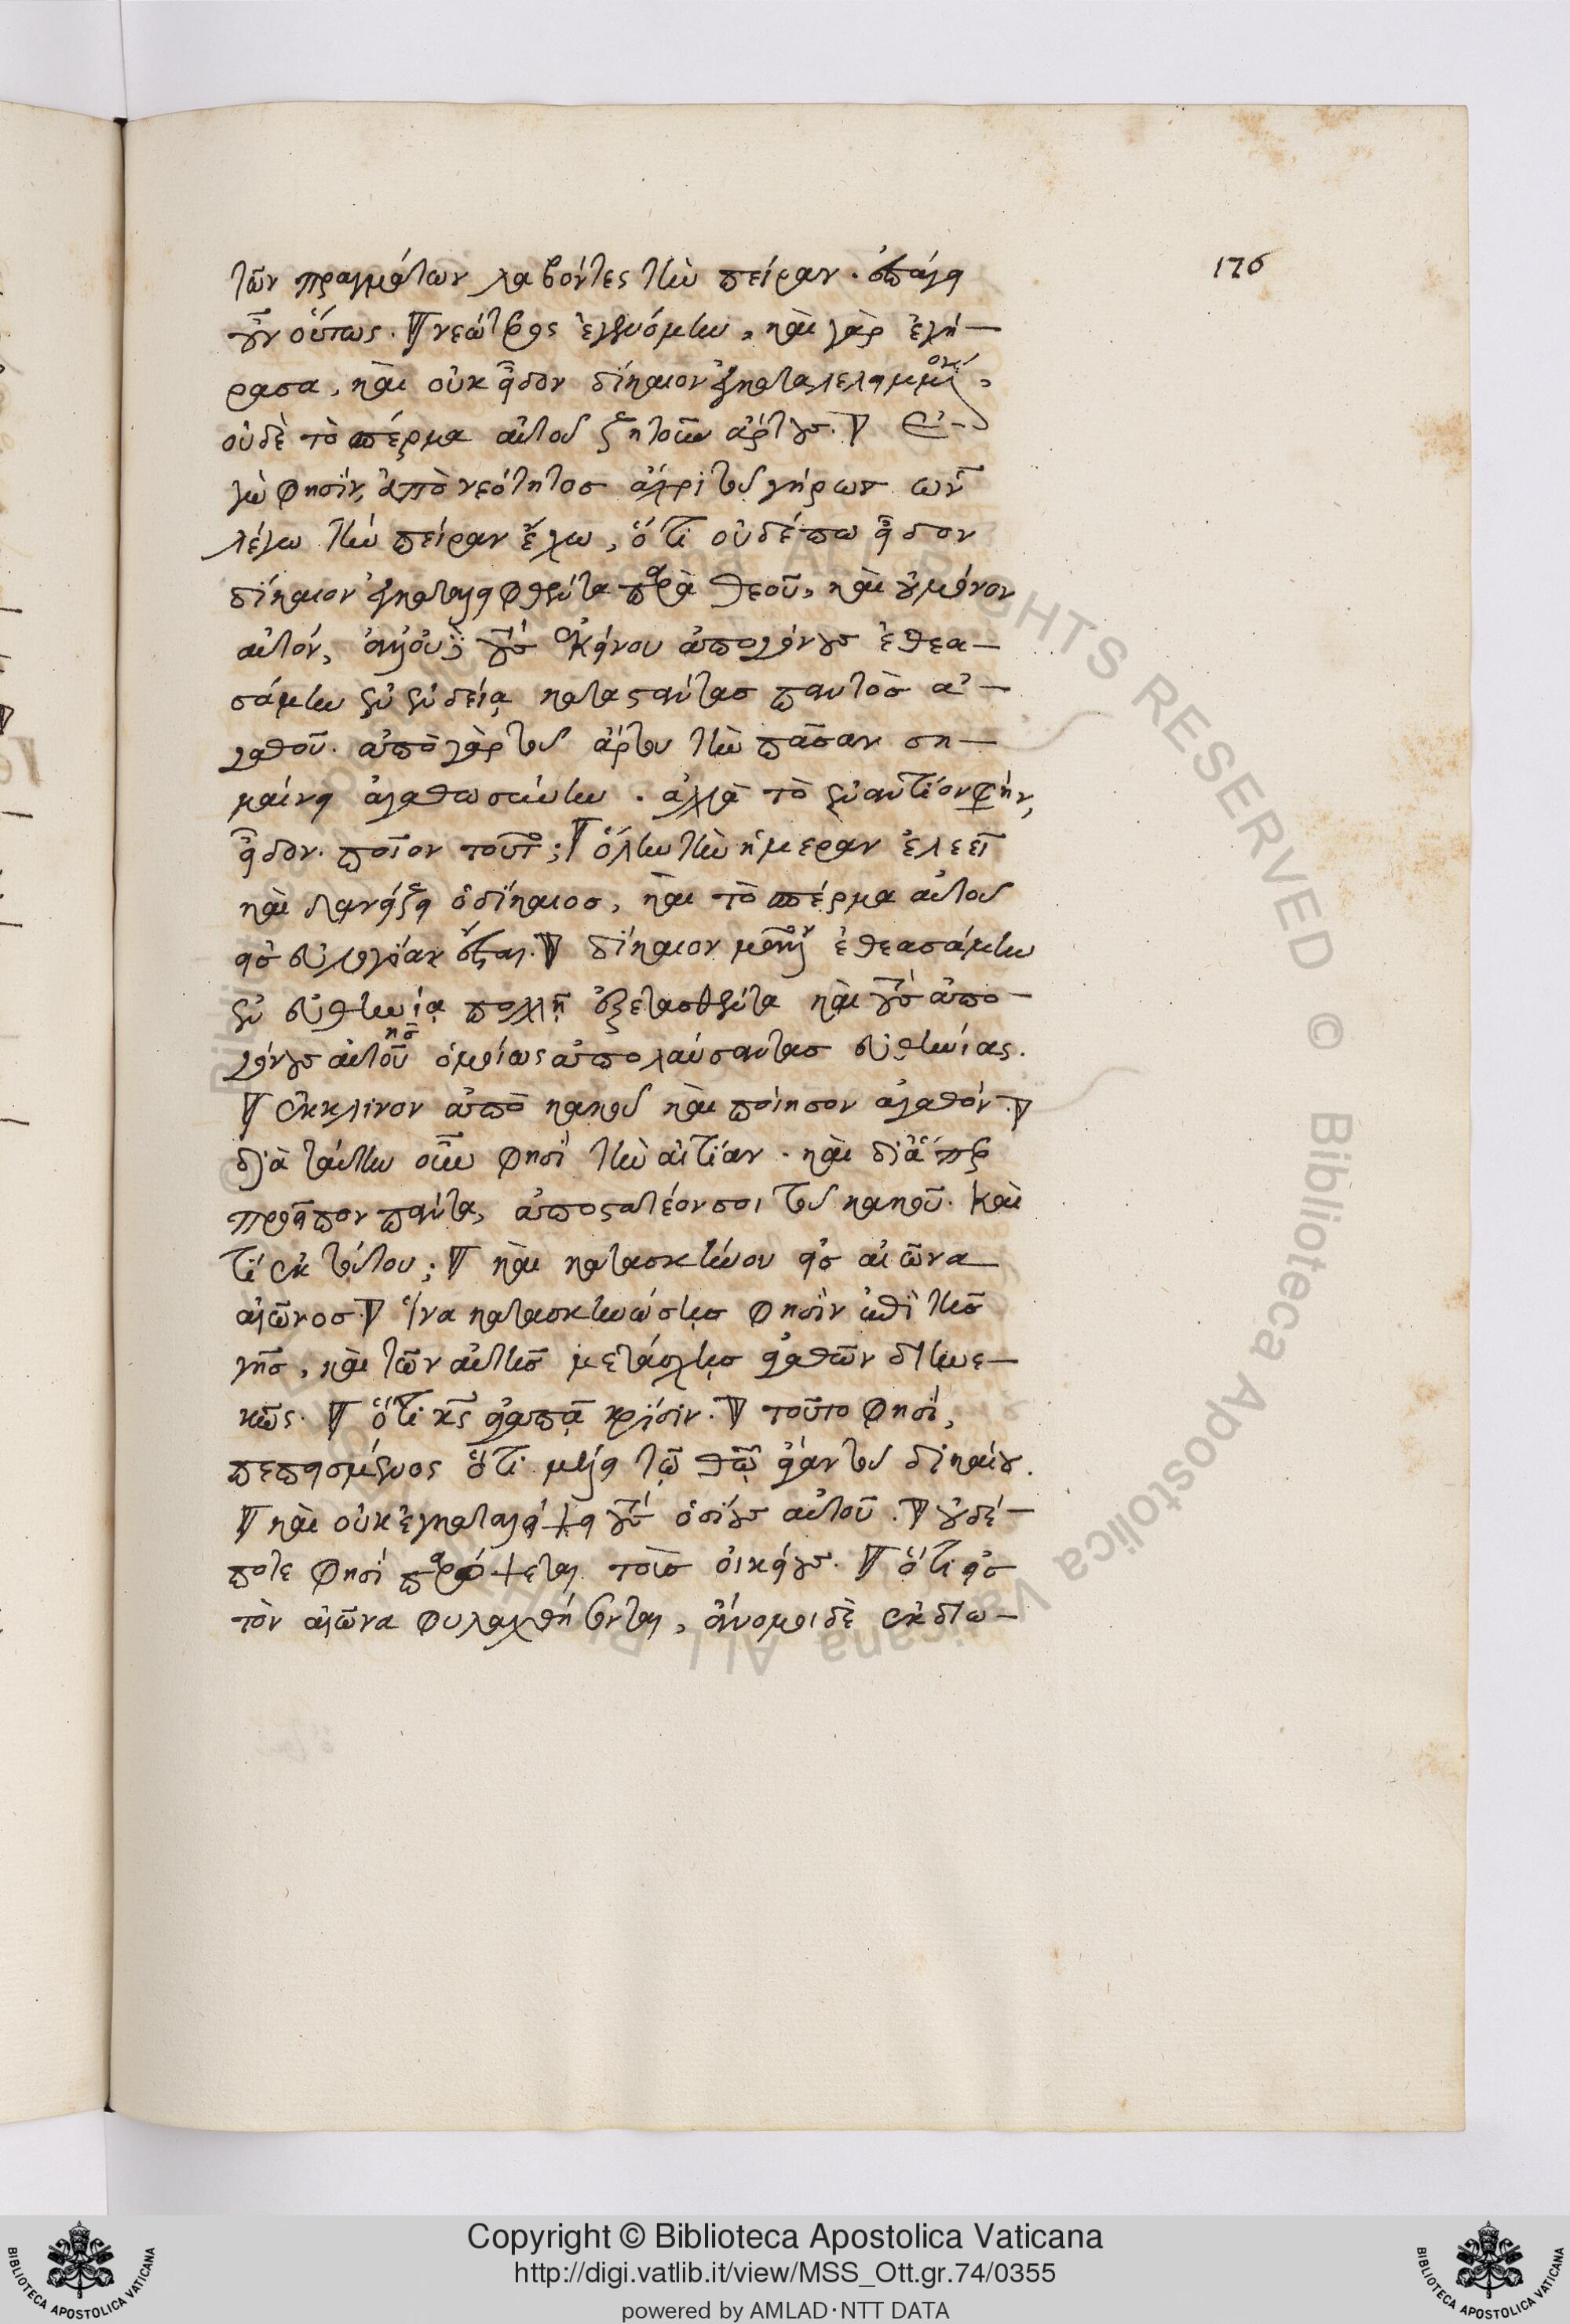 τῶν πραγμάτων λαβόντες τὴν πεῖραν. ἐπάγει
γοῦν οὕτως. νεώτερος ἐγενόμην, καὶ γὰρ ἐγή-
ρασα, καὶ οὐκ εἶδον δίκαιον ἐγκαταλελειμμένον,
οὐδὲ τὸ σπέρμα αὐτοῦ ζητοῦν ἄρτους. Ἐ-
γὼ φησὶν, ἀπὸ νεότητος ἄχρι τοῦ γήρως ὧν
λέγω τὴν πεῖραν ἔχω, ὅτι οὐδέπω εἶδον
δίκαιον ἐγκαταλειφθέντα παρὰ θεοῦ, καὶ οὐ μόνον
αὐτόν, ἀλλ' οὐδὲ τοὺς ἐκείνου ἀπογόνους ἐθεα-
σάμην ἐν ἐνδείᾳ καταστάντας παντὸς ἀ-
γαθοῦ. ἀπὸ γὰρ τοῦ ἄρτου τὴν πᾶσαν ση-
μαίνει ἀγαθωσύνην. ἀλλὰ τὸ ἐναντίον φὴν,
εἶδον. ποῖον τοῦτο; ὅλην τὴν ἡμέραν ἐλεεῖ
καὶ δανείζει ὁ δίκαιος, καὶ τὸ σπέρμα αὐτοῦ
εἰς εὐλογίαν ἔσται. δίκαιον μόνον ἐθεασάμην
ἐν εὐθηνίᾳ πολλῇ ἐξετασθέντα καὶ τοὺς ἀπο-
γόνους αὐτοῦ ὁμοίως ἀπολαύσαντας εὐθηνίας.
ἔκκλινον ἀπὸ κακοῦ καὶ ποίησον ἀγαθόν.
διὰ ταύτην οὖν φησὶ τὴν αἰτίαν. καὶ δι' ἅπερ
προεῖπον πάντα, ἀποστατέον σοι τοῦ κακοῦ. καὶ
τί ἐκ τούτου; καὶ κατασκήνου εἰς αἰῶνα
αἰῶνος. ἵνα κατασκηνώσῃς φησὶν ἐπὶ τῆς
γῆς, καὶ τῶν αὐτῆς μετάσχῃς ἀγαθῶν διηνε-
κῶς. ὅτι κς ἀγαπᾷ κρίσιν. τοῦτο φησὶ,
πεπεισμένος ὅτι μέλει τῷ θῷ τοῦ δικαίου.
καὶ οὐκ ἐγκαταλείψει τοὺς ὁσίους αὐτοῦ. οὐδέ-
ποτε φησὶ παρόψεται τοὺς οἰκείους. ὅτι εἰς
τὸν αἰῶνα φυλαχθήσονται, ἄνομοι δὲ ἐκδιω-
176
Copyright © Biblioteca Apostolica Vaticana
http://digi.vatlib.it/view/MSS_Ott.gr.74/0355
powered by AMLAD·NTT DATA
BIBLIOTECA APOSTOLICA VATICANA
BIBLIOTECA APOSTOLICA VATICANA